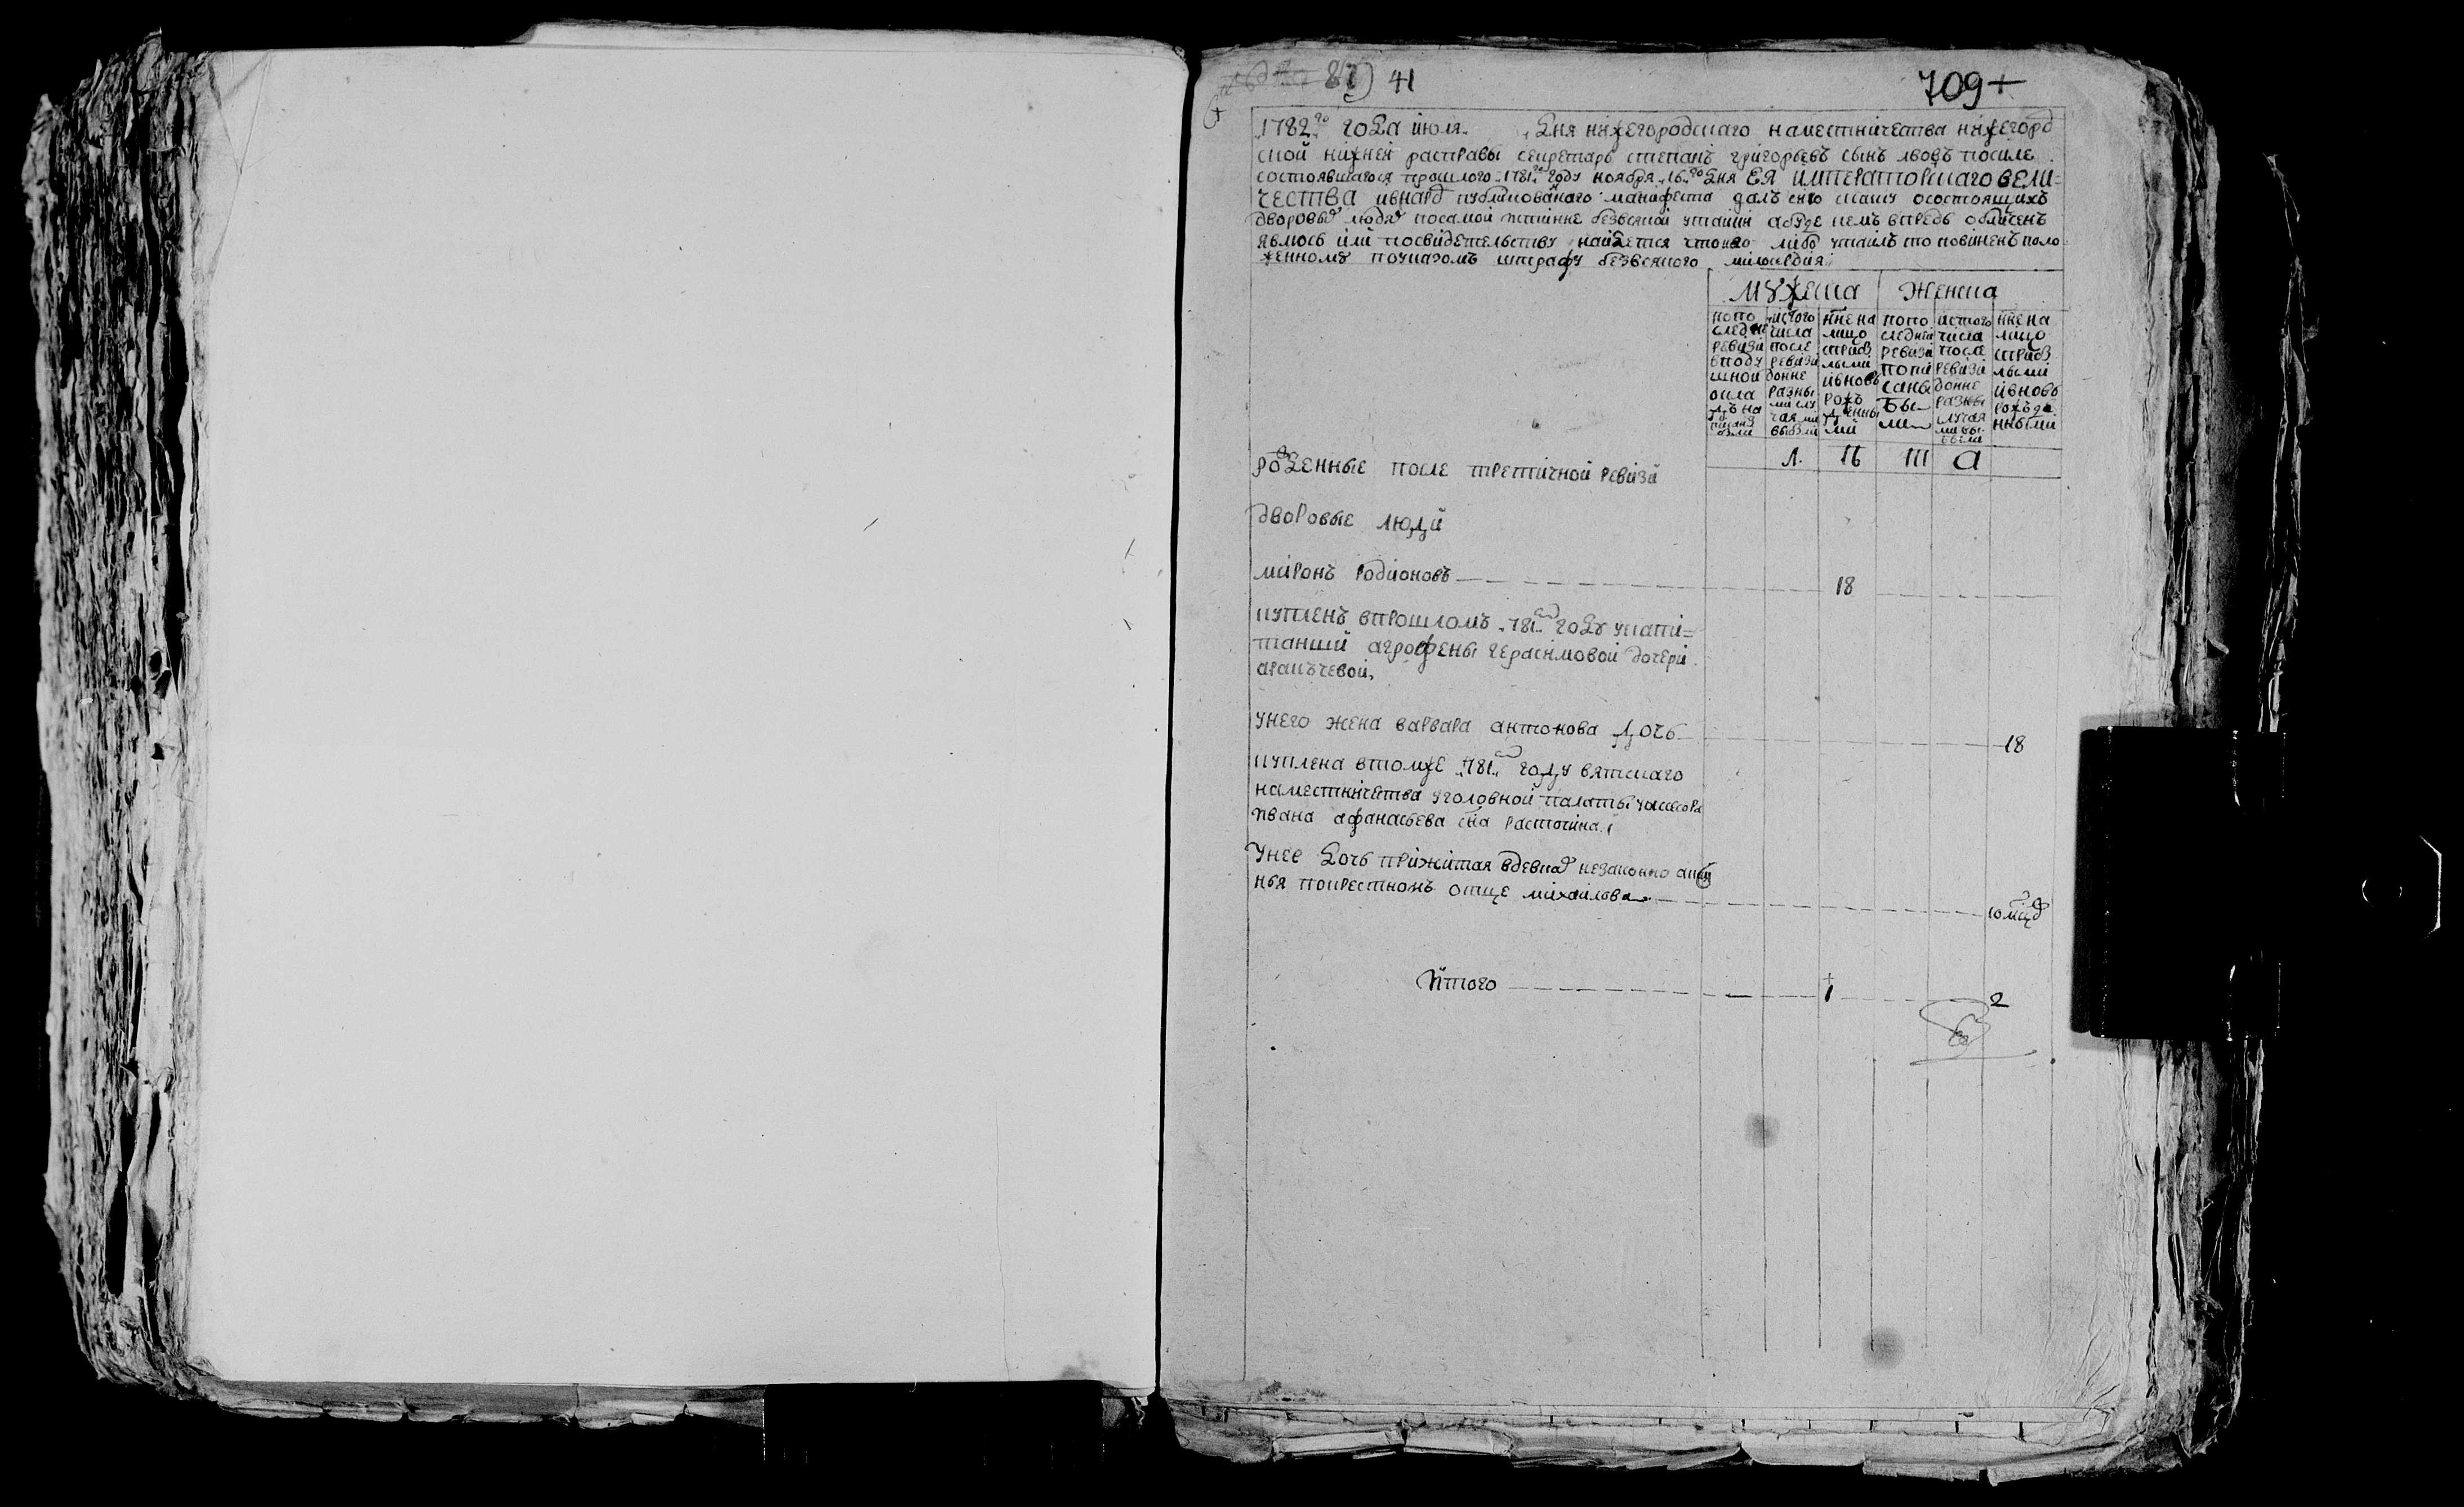 87) 41
709+
1782го года июля. дня нижегородскаго наместничества нижегород
ской нижней расправы секретарь степанъ григорьевъ сынъ львовъ посиле
состоявшагося прошлого 1781го году ноября 16го дня ЕЯ ИМПЕРАТОРСКАГО ВЕЛИ=
ЧЕСТВА ивнарод публикованого манифеста далъ сию скаску осостоящихъ
дворовых людях посамой истинне безвсякой утайки абуде чемъ впредь обличенъ
явлюсь или посвидетельству найдется что кого либо утаилъ то повиненъ поло
женному поуказомъ штрафу безвсякого милосердия
Мужеска Женска
попо следне ревизи вподу шной окла дъ на писаны были
истого числа после ревизи донне разны ми случ чаями выбыли
ныне на лицо сприб лыми ивновь рож денны ми
попо следней ревизи попи саны бы ли
истого числа после ревизи донне разны случая ми вы были
ныне на лицо сприб лыми ивновь рожде нными
роженные после третичной ревизи
дворовые люди
миронъ родионовъ 18
купленъ впрошломъ 781м году укапи=
танши агрофены герасимовой дочери
аракъчевой,
унего жена варвара антонова дочь 18
куплена втомже 781м году вятскаго
наместничества уголовной палаты уасесора
ивана афанасьева сна расточина
унее дочь прижитая вдевках незаконно аку
нья покрестномъ отце михайлова 10 мцов
Итого 1 2